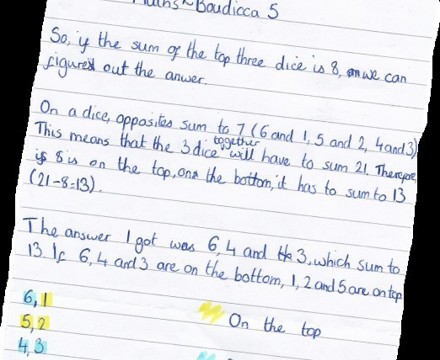 Maths ~ Boudicca 5
So, if the sum of the top three dice is 8, we can
figure out the anwer.
On a dice, opposites sum to 7 (6 and 1, 5 and 2, 4 and 3)
This means that the 3 dice together will have to sum 21. Therefore
if 8 is on the top, on the bottom, it has to sum to 13
(21-8=13).
The answer I got was 6, 4 and 3, which sum to
13. If 6, 4 and 3 are on the bottom, 1, 2 and 5 are on top
6,1
5,2
On the top
4,3